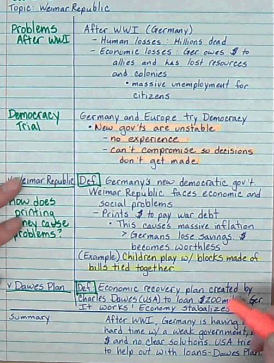 Topic: Weimar Republic
Problems After WWI
After WWI (Germany)
- Human losses: Millions dead
- Economic losses: Ger owes $ to
allies and has lost resources
and colonies
• massive unemployment for
citizens
Democracy Trial
Germany and Europe try Democracy
• New gov'ts are unstable
- no experience
- can't compromise so decisions
don't get made
Weimar Republic
Def Germany's new democratic gov't
Weimar Republic faces economic and
social problems
How does
printing
money cause
problems?
- Prints $ to pay war debt
• This causes massive inflation
> Germans lose savings. $
becomes worthless
(Example) Children play w/ blocks made of
bills tied together
v Dawes Plan
Def Economic recovery plan created by
Charles Dawes (USA) to loan $200mil Ger
It works! Economy stabalizes
Summary
After WWI, Germany is having a
hard time w/ a weak government,
$ and no clear solutions. USA
to help out with loans - Dawes Plan.